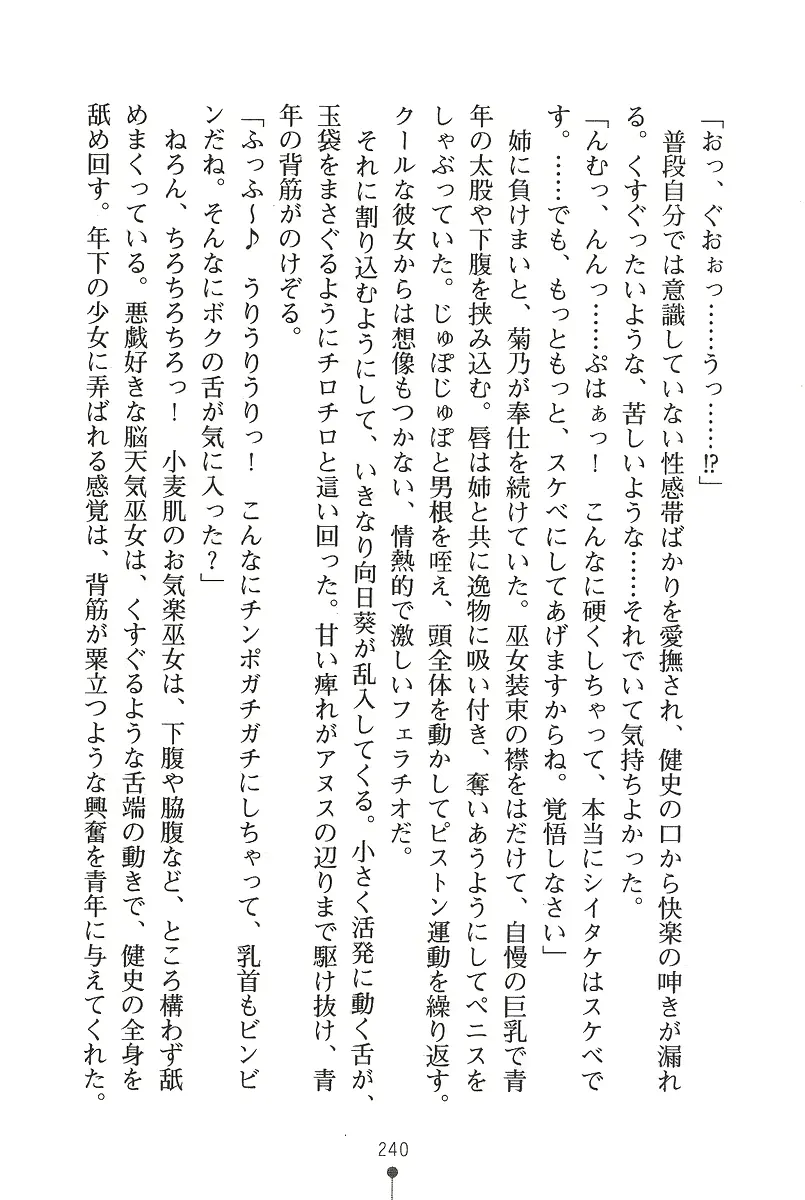 「おっ、ぐおぉっ……うっ……⁉」
　普段自分では意識していない性感帯ばかりを愛撫され、健史の口から快楽の呻きが漏れ
る。くすぐったいような、苦しいような……それでいて気持ちよかった。
「んむっ、んんっ……ぷはぁっ！　こんなに硬くしちゃって、本当にシイタケはスケベで
す。……でも、もっともっと、スケベにしてあげますからね。覚悟しなさい」
　姉に負けまいと、菊乃が奉仕を続けていた。巫女装束の襟をはだけて、自慢の巨乳で青
年の太股や下腹を挟み込む。唇は姉と共に逸物に吸い付き、奪いあうようにしてペニスを
しゃぶっていた。じゅぽじゅぽと男根を咥え、頭全体を動かしてピストン運動を繰り返す。
クールな彼女からは想像もつかない、情熱的で激しいフェラチオだ。
　それに割り込むようにして、いきなり向日葵が乱入してくる。小さく活発に動く舌が、
玉袋をまさぐるようにチロチロと這い回った。甘い痺れがアヌスの辺りまで駆け抜け、青
年の背筋がのけぞる。
「ふっふ〜♪　うりうりうりっ！　こんなにチンポガチガチにしちゃって、乳首もビンビ
ンだね。そんなにボクの舌が気に入った？」
　ねろん、ちろちろちろっ！　小麦肌のお気楽巫女は、下腹や脇腹など、ところ構わず舐
めまくっている。悪戯好きな脳天気巫女は、くすぐるような舌端の動きで、健史の全身を
舐め回す。年下の少女に弄ばれる感覚は、背筋が粟立つような興奮を青年に与えてくれた。
240